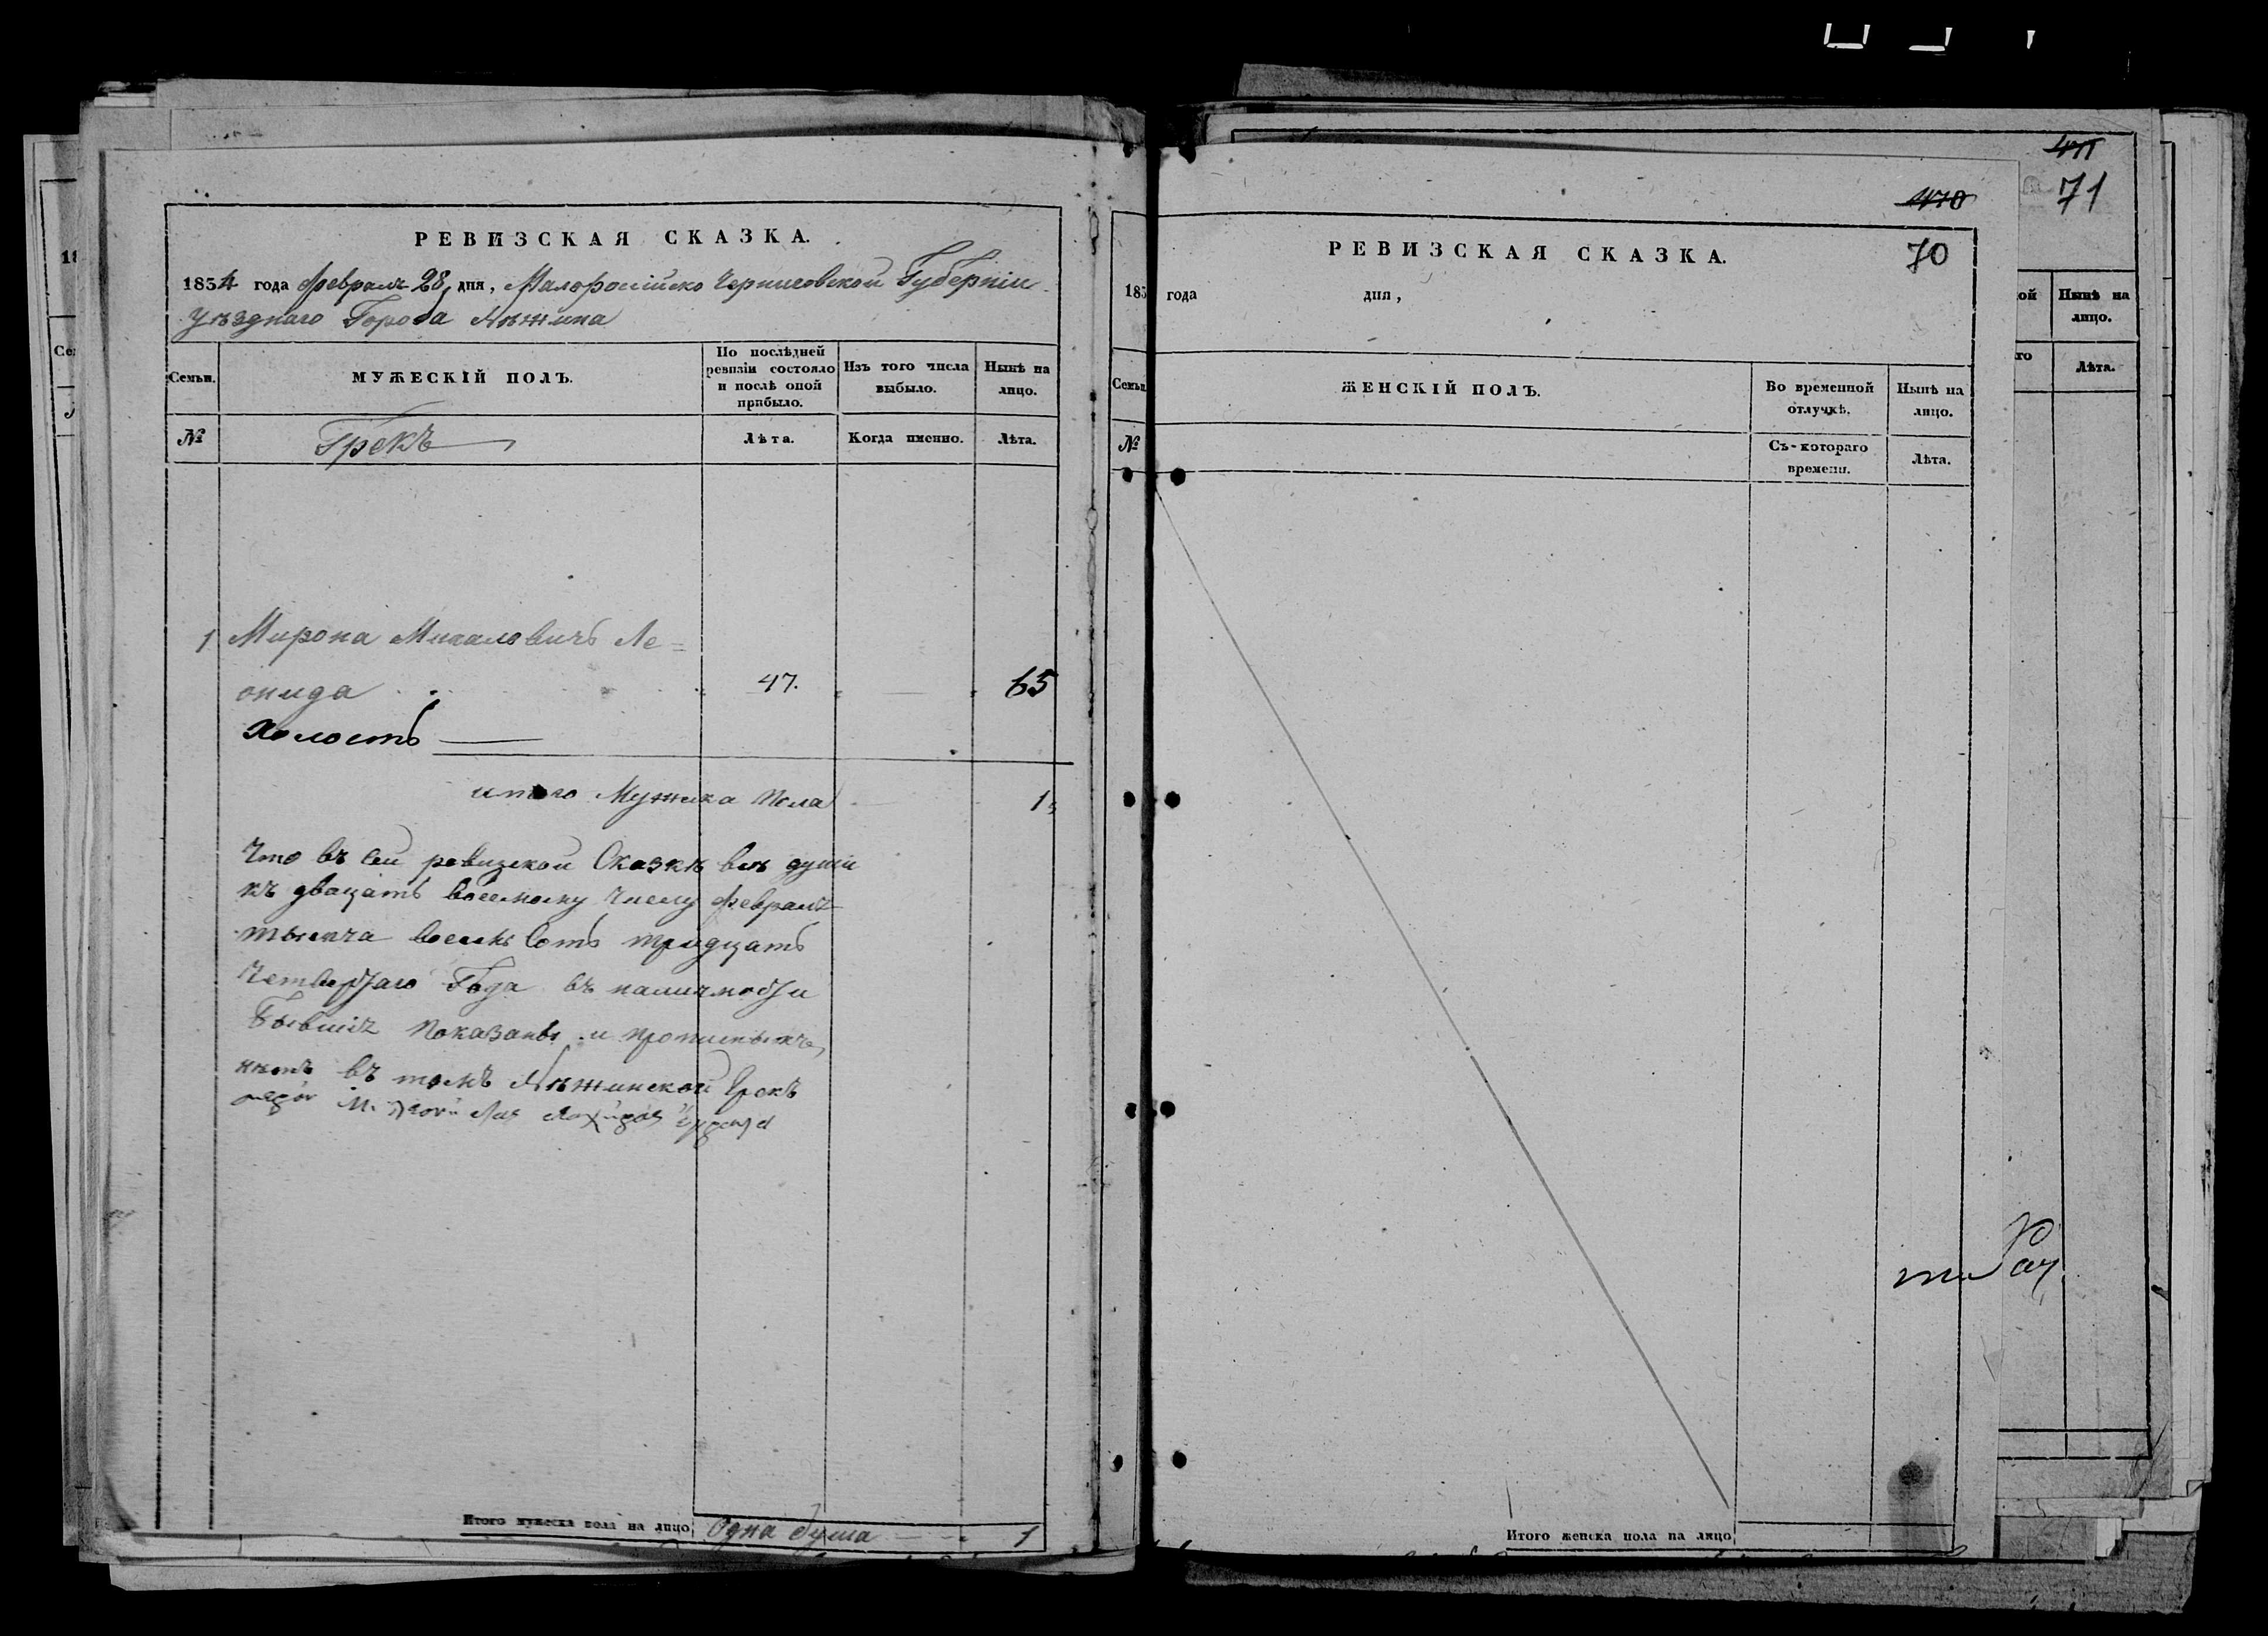 РЕВИЗСКАЯ СКАЗКА.
1834 года Февраля 28 дня, Малоросійско Черниговской Губерніи
Уѣзднаго Города Нѣжина
Семьи.
МУЖЕСКІЙ ПОЛЪ.
По послѣдней ревизіи состояло и послѣ оной прибыло.
Изъ того числа выбыло.
Нынѣ на лицо.
№
Грекъ
Лѣта.
Когда именно.
Лѣта.
1 Мирона Михаловичъ Ле=
онида 47. 65
Холостъ
итого Мужска Пола 1
Что въ сей ревизской Сказкѣ всѣ души
къ двацать восемому числу Февраля
тысяча восемь сотъ тридцать
Четвертаго Года въ наличности
Бывшіе показаны и прописныхъ
нѣтъ въ томъ Нѣжинской Грекъ
Итого мужеска пола на лицо Одна душа 1
470
70
РЕВИЗСКАЯ СКАЗКА.
183 года дня,
Семьи
ЖЕНСКІЙ ПОЛЪ.
Во временной отлучкѣ.
Нынѣ на лицо.
№
Съ-котораго времени.
Лѣта.
Итого женска пола на лицо
471
71
ой
Нынѣ на лицо.
го
Лѣта.